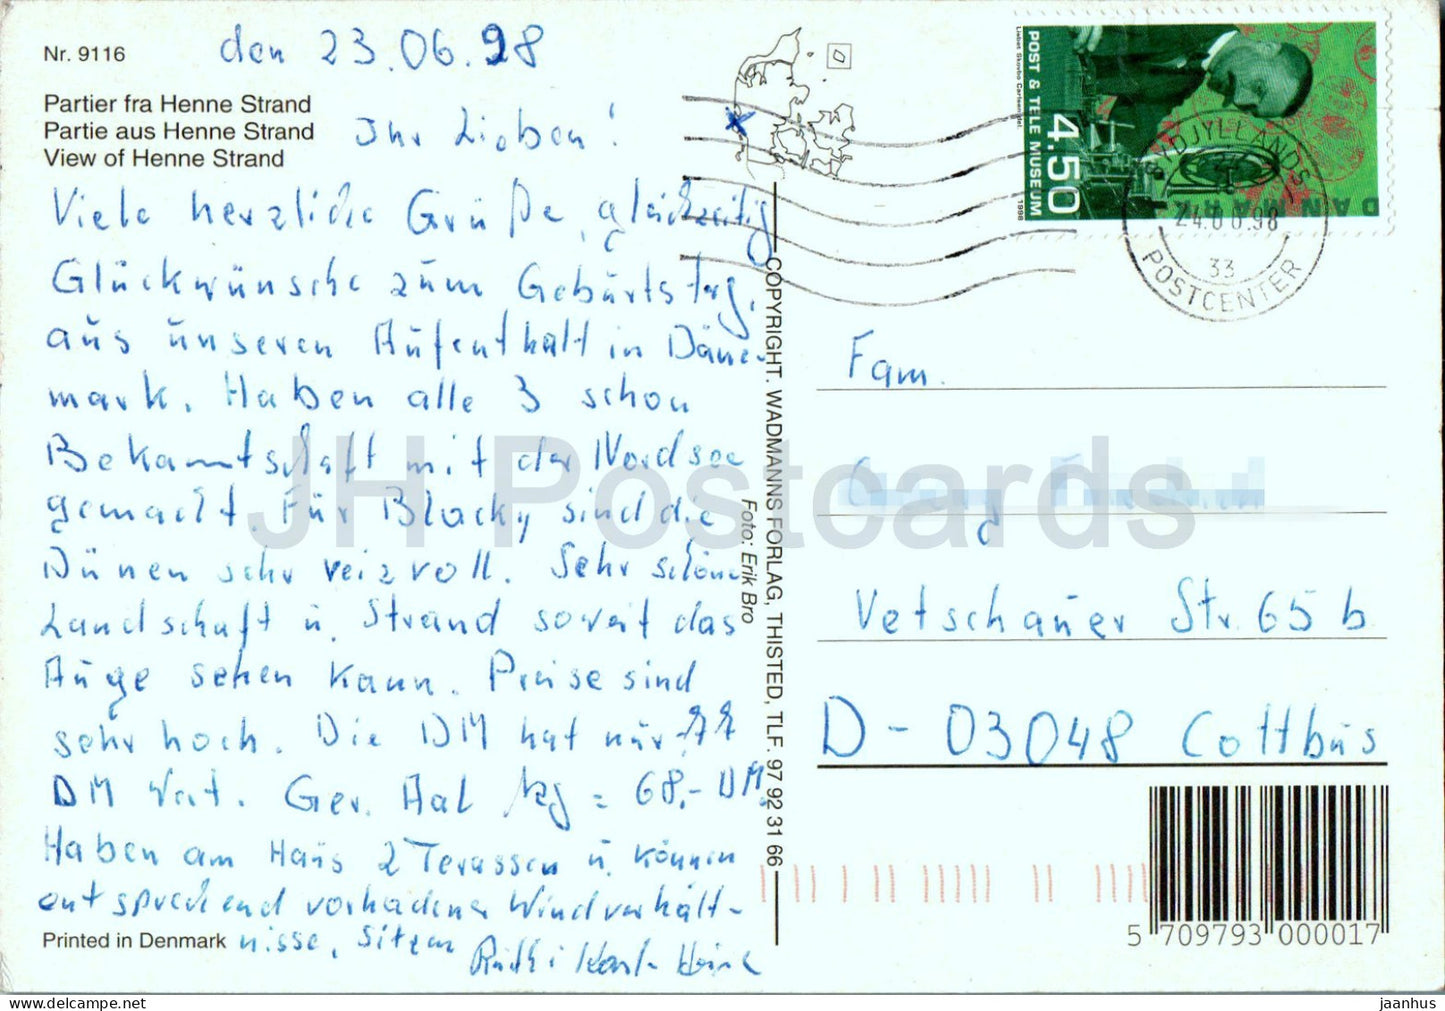 Nr. 9116
den 23.06.98
Partier fra Henne Strand
Partie aus Henne Strand
View of Henne Strand
Ihr Lieben!
Viele herzliche Grüße, gleichzeitig
Glückwünsche zum Geburtstag,
aus unseren Aufenthalt in Däne-
mark. Haben alle 3 schon
Bekanntschaft mit der Nordsee
gemacht. Für Blacky sind die
Dünen sehr reizvoll. Sehr schöne
Landschaft u. Strand soweit das
Auge sehen kann. Preise sind
sehr hoch. Die DM hat nur
DM Wert. Ger. Aal 1kg = 68,- DM.
Haben am Haus 2 Terassen u. können
entsprechend vorhandener Windverhält-
nisse, sitzen
Karl-Heinz
Printed in Denmark
COPYRIGHT. WADMANNS FORLAG, THISTED, TLF. 97 92 31 66
Foto: Erik Bro
POST & TELE MUSEUM
4.50
DANMARK
1998
SYDJYLLANDS
24.06.98
33
POSTCENTER
Fam.
Vetschauer Str. 65 b
D-03048 Cottbus
5 709793 000017
JH Postcards
jaanhus